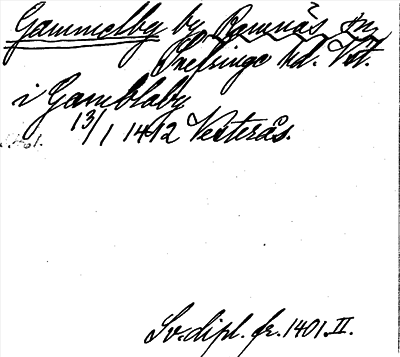 Gammelby by Ramnäs sn
Snefringe hd. Vstm.
i Gamblaby
13/1 1412 Vesterås.
Sv. dipl. fr. 1401. II.